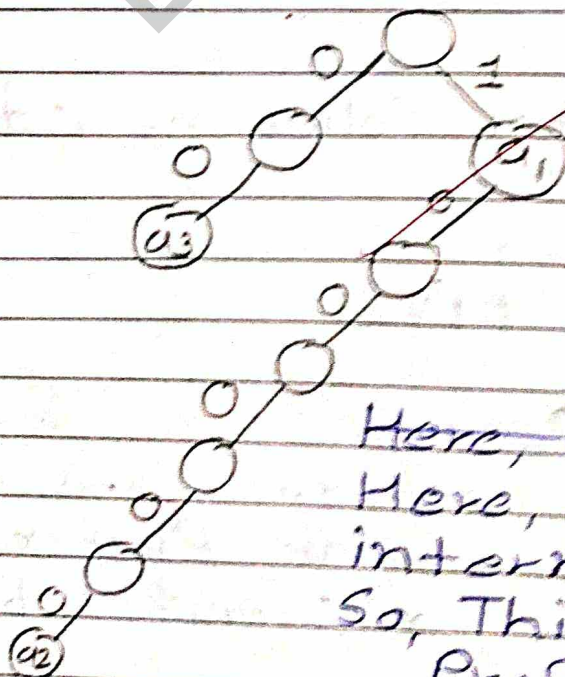 0
1
0
a1
a3
0
0
0
0
0
a2
Here,
Here,
inter
So, Thi